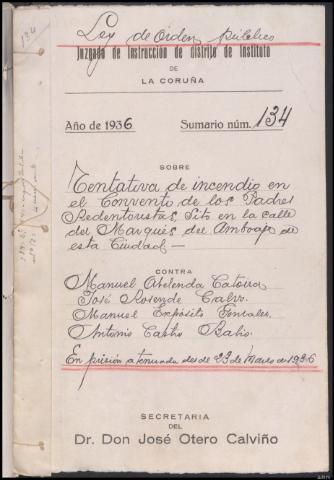 Ley de Orden público
Juzgado de Instrucción de distrito de Instituto
DE
LA CORUÑA
Año de 1936 Sumario núm. 134
SOBRE
Tentativa de incendio en
el Convento de los Padres
Redentoristas, Sito en la calle
del Marqués del Amboage de
esta Ciudad—
CONTRA
Manuel Abelenda Catoira
José Rosende Calvo
Manuel Expósito Gonzalez
Antonio Castro Babio
En prisión atenuada desde 23 de Marzo de 1936
SECRETARIA
DEL
Dr. Don José Otero Calviño
134